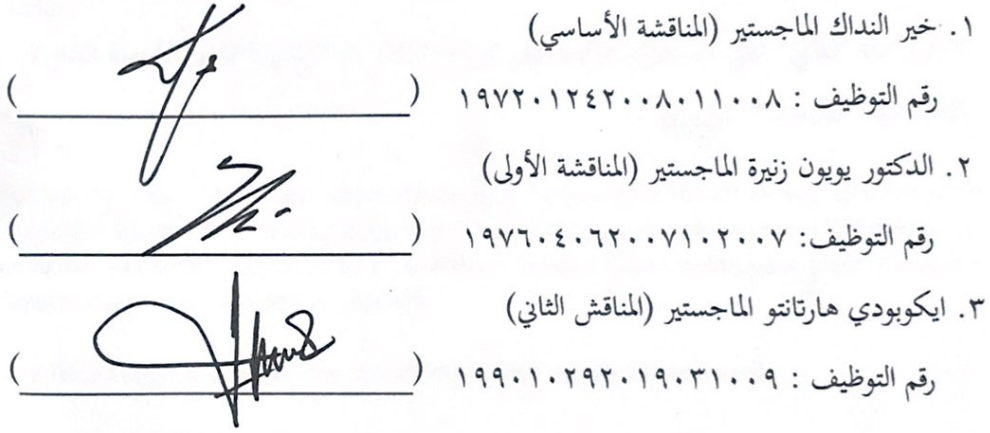 ١. خير النداك الماجستير (المناقشة الأساسي)
رقم التوظيف : ١٩٧٢٠١٢٤٢٠٠٨٠١١٠٠٨
( )
٢. الدكتور يويون زنيرة الماجستير (المناقشة الأولى)
رقم التوظيف: ١٩٧٦٠٤٠٦٢٠٠٧١٠٢٠٠٧
( )
٣. ايكوبودي هارتانتو الماجستير (المناقش الثاني)
رقم التوظيف : ١٩٩٠١٠٢٩٢٠١٩٠٣١٠٠٩
( )